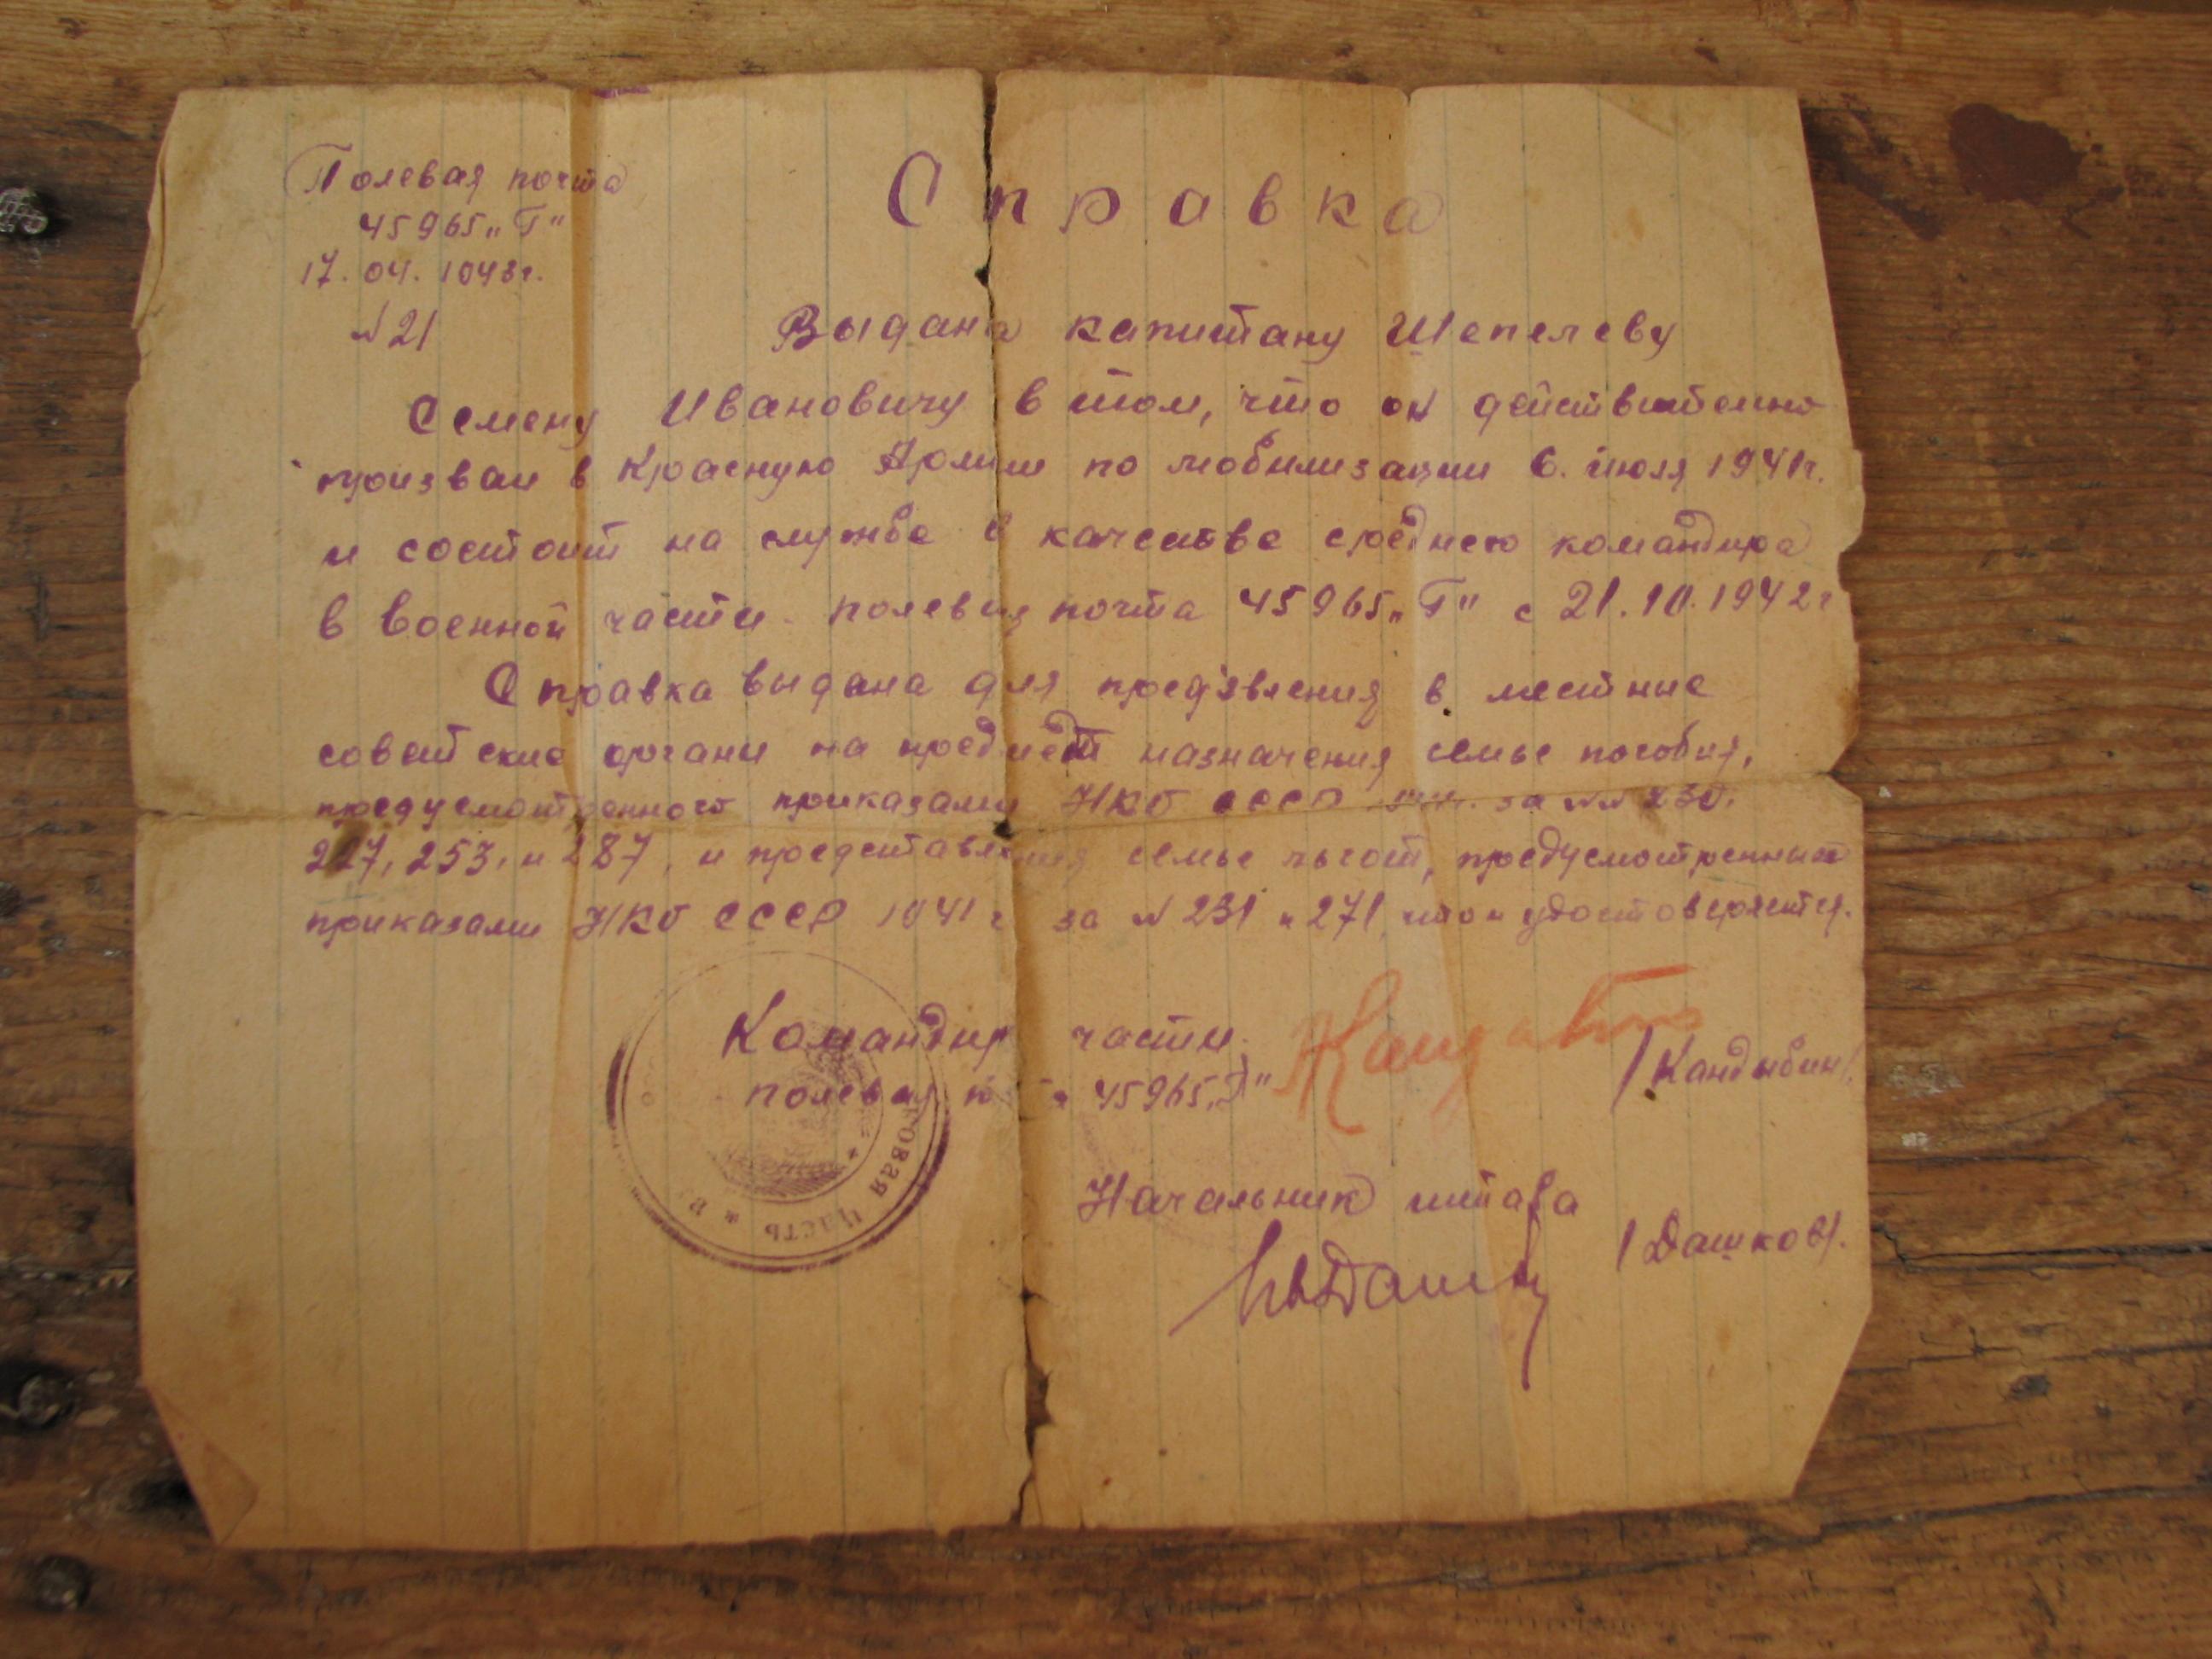 Полевая почта
45965 „Г"
17.04.1943г.
№ 21
Справка
Выдана капитану Шепелеву
Семену Ивановичу в том, что он действительно
призван в Красную Армию по мобилизации 6. июля 1941г.
и состоит на службе в качестве среднего командира
в военной части полевая почта 45965 „Г" с 21.10.1942г
Справка выдана для пред'явления в местные
советские органы на предмет назначения семье пособия,
предусмотренного приказами НКО СССР за №№ 230,
227, 253, и 287, и представления семье льгот, предусмотренных
приказами НКО СССР 1941 г за № 231 и 271, что и удостоверяется.
Командир части
полевая 45965 „Г"
/Кандыбин/.
Начальник штаба
/Дашков/.
часть